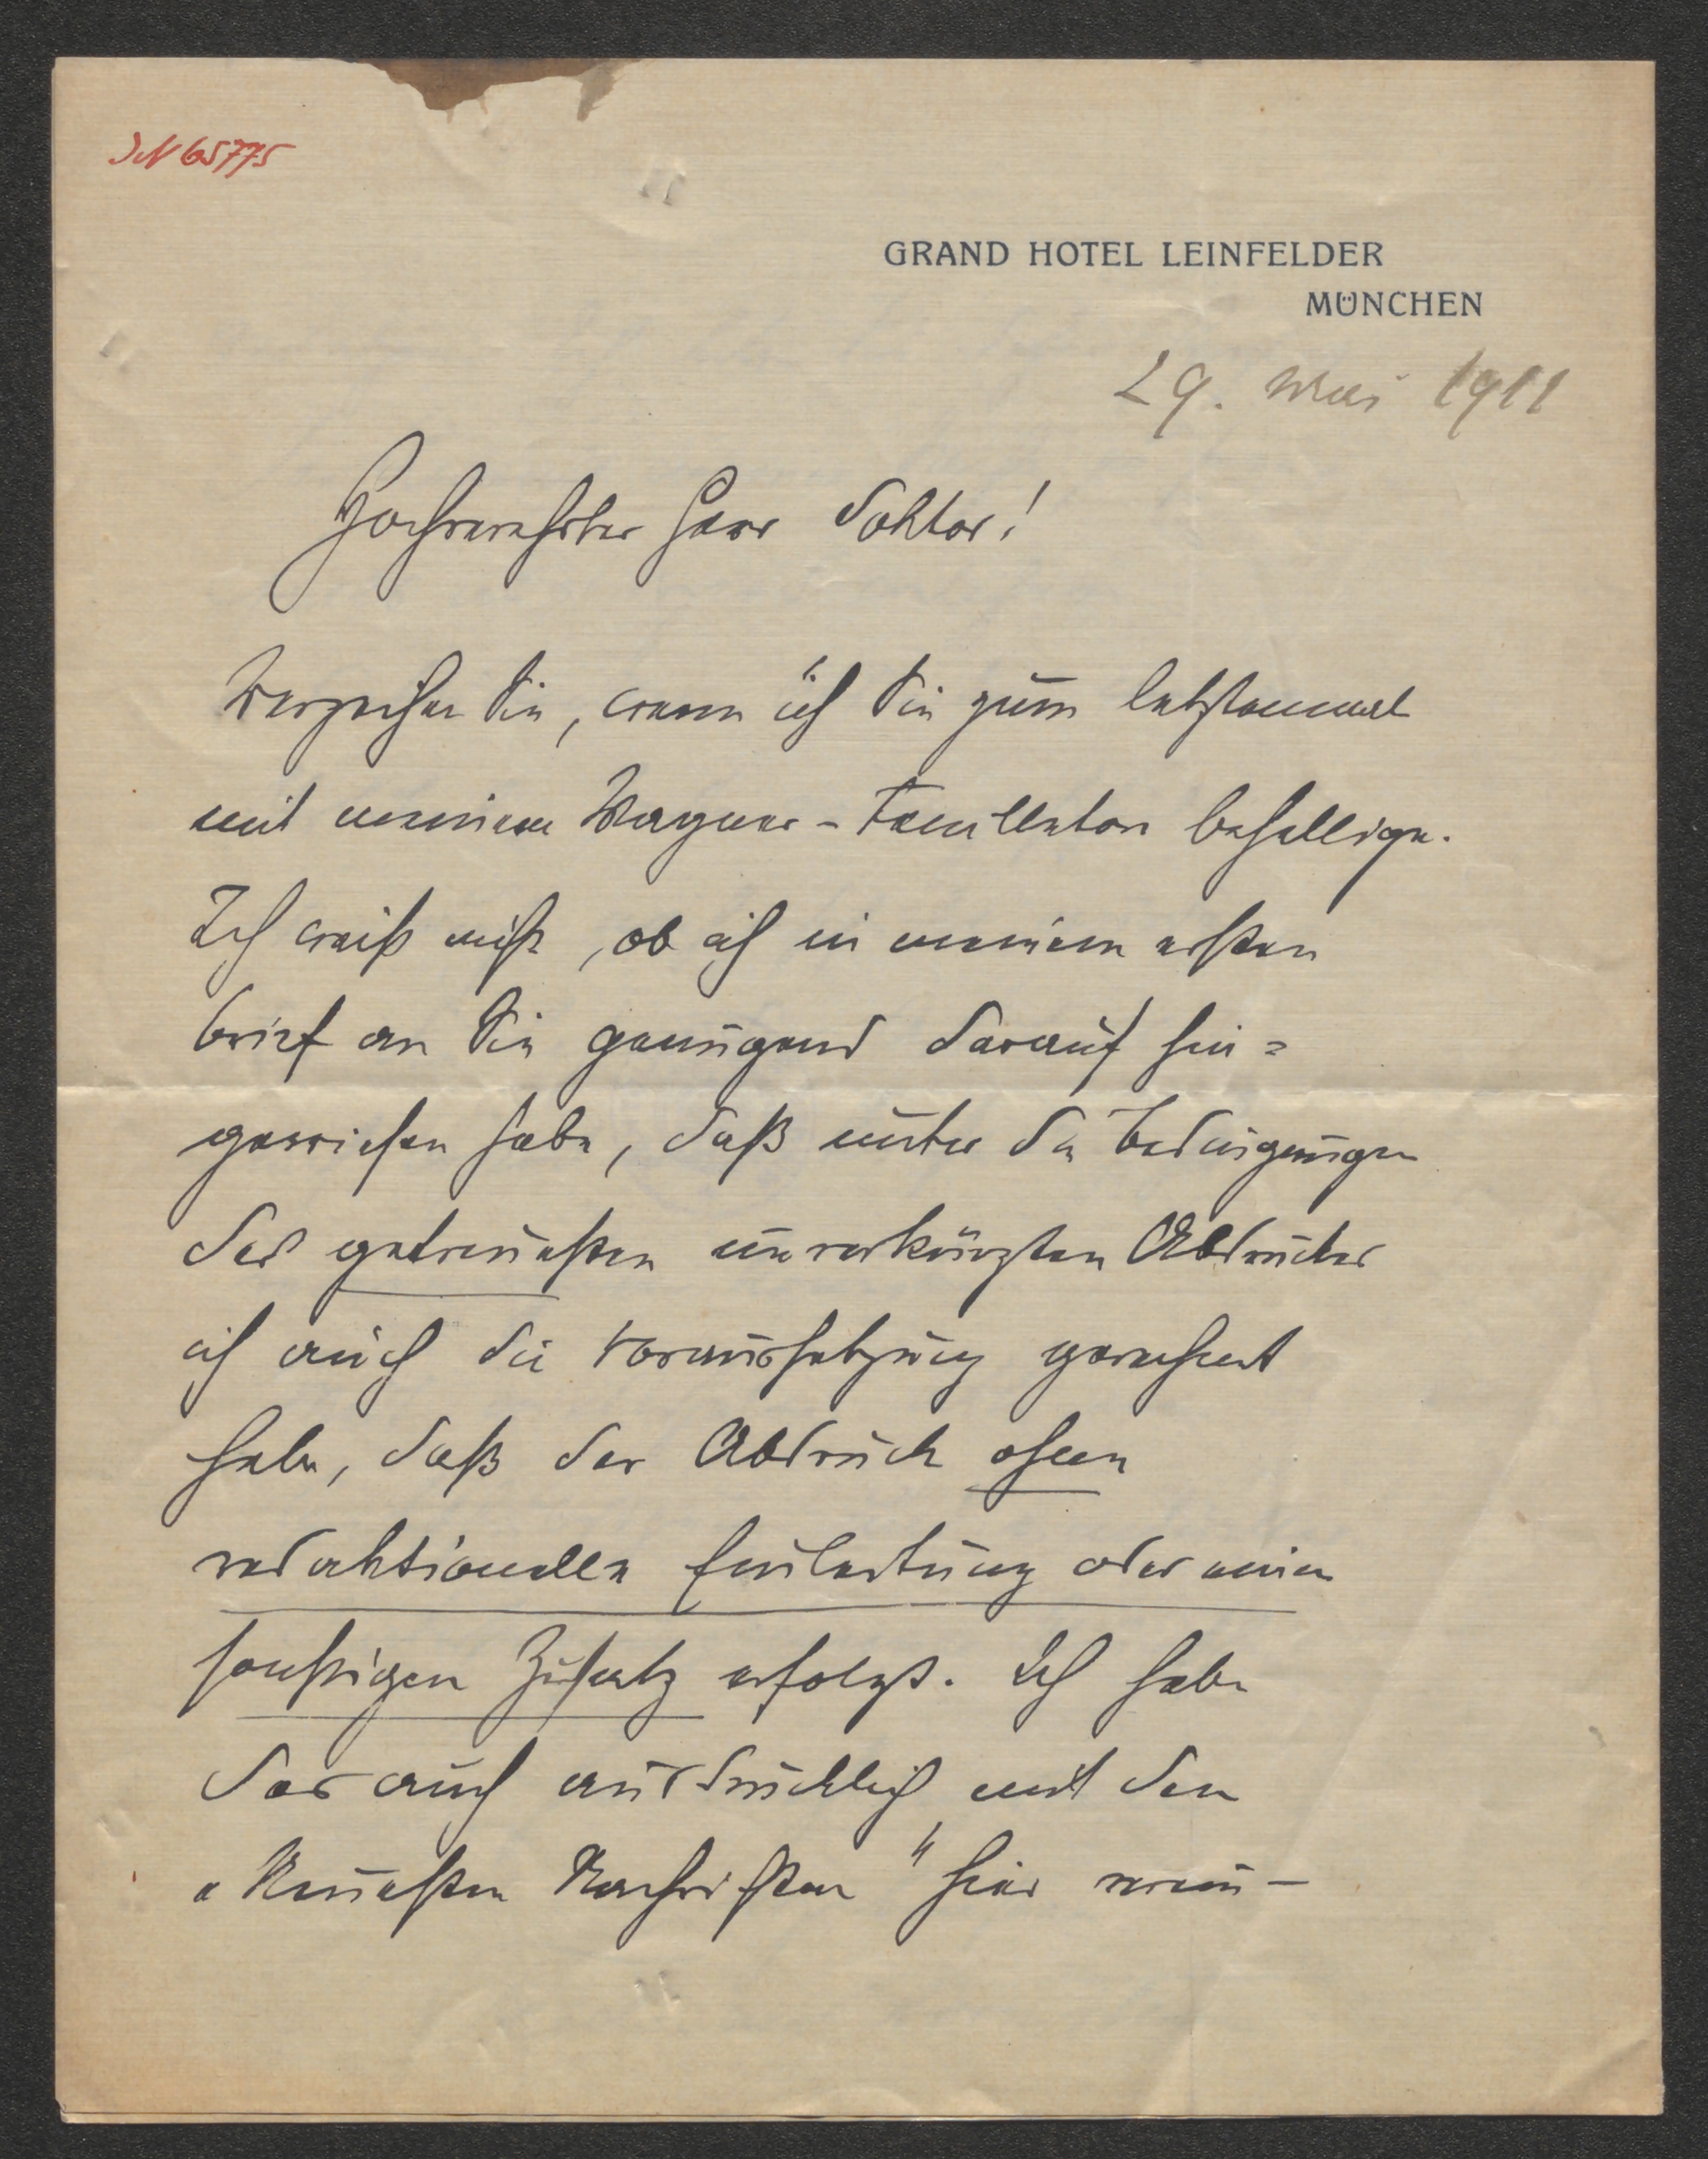 IN 65775
GRAND HOTEL LEINFELDER
MÜNCHEN
29. Mai 1911
Hochverehrter Herr Doktor!
Verzeihen Sie, wenn ich Sie zum letztenmal
mit meinem Wagner-Feuilleton behellige.
Ich weiß nicht, ob ich in meinem ersten
Brief an Sie genügend darauf hin=
gewiesen habe, daß unter die Bedingungen
des getreuesten unverkürzten Abdruckes
ich auch die Voraussetzung gerechnet
habe, daß der Abdruck ohne
redaktionelle Einleitung oder einen
sonstigen Zusatz erfolgt. Ich habe
das auch ausdrücklich mit den
„Neuesten Nachrichten" hier verein-